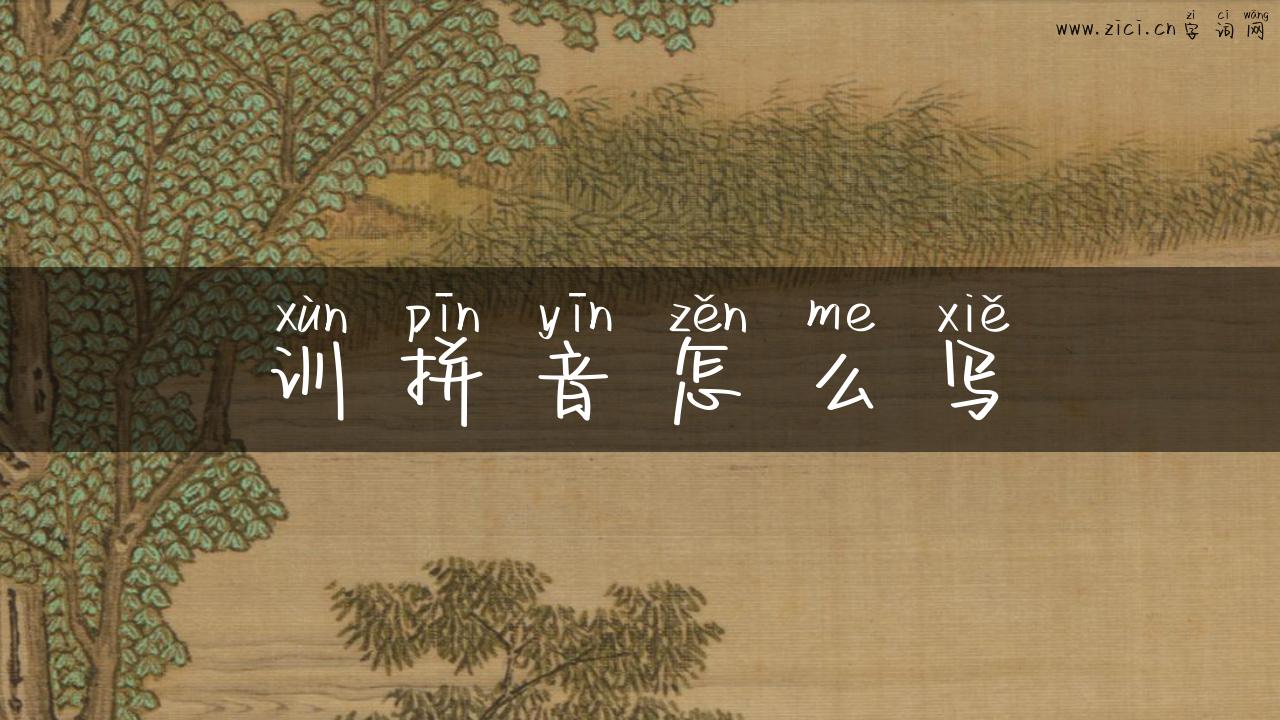 zì cí wǎng
www.zici.cn 字词网
xùn pīn yīn zěn me xiě
训拼音怎么写